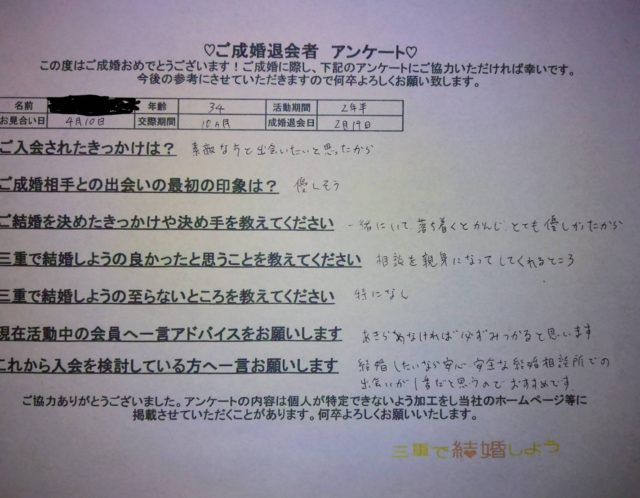 ♡ご成婚退会者 アンケート♡
この度はご成婚おめでとうございます！ご成婚に際し、下記のアンケートにご協力いただければ幸いです。
今後の参考にさせていただきますので何卒よろしくお願い致します。
名前 年齢 34 活動期間 2年半
お見合い日 4月10日 交際期間 10ヵ月 成婚退会日 2月19日
ご入会されたきっかけは？ 素敵な方と出会いたいと思ったから
ご成婚相手との出会いの最初の印象は？ 優しそう
ご結婚を決めたきっかけや決め手を教えてください 一緒にいて、落ち着くとかんじ、とても優しかったから
三重で結婚しようの良かったと思うことを教えてください 相談を親身になってしてくれるところ
三重で結婚しようの至らないところを教えてください 特になし
現在活動中の会員へ一言アドバイスをお願いします あきらめなければ必ずみつかると思います
これから入会を検討している方へ一言お願いします 結婚したいなら安心、安全な結婚相談所での
出会いが1番だと思うのでおすすめです。
ご協力ありがとうございました。アンケートの内容は個人が特定できないよう加工をし当社のホームページ等に
掲載させていただくことがあります。何卒よろしくお願いいたします。
三重で結婚しよう